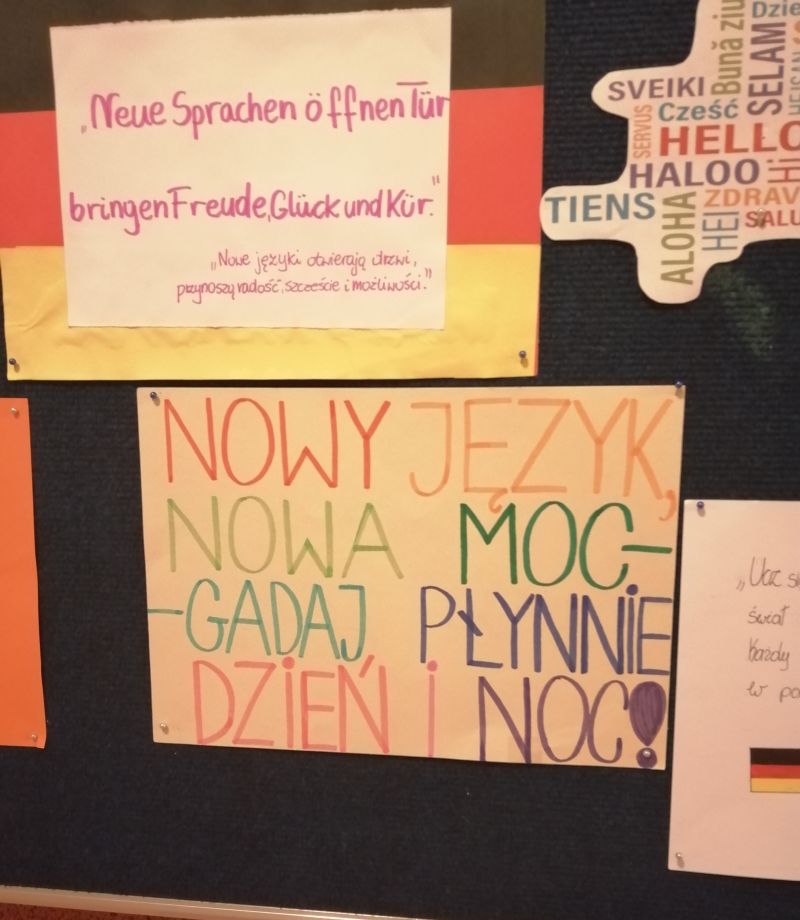 „Neue Sprachen öffnen Tür
bringen Freude, Glück und Kür."
„Nowe języki otwierają drzwi,
przynoszą radość, szczęście i możliwości."
Dzie
Bună ziu
SELAM
SVEIKI
SERVUS
Cześć
HELLO
HALOO
Hi
TIENS
ALOHA
HEI
ZDRAV
SALU
NOWY JĘZYK,
NOWA MOC-
-GADAJ PŁYNNIE
DZIEŃ i NOC!
„Ucz
świat
każdy
w